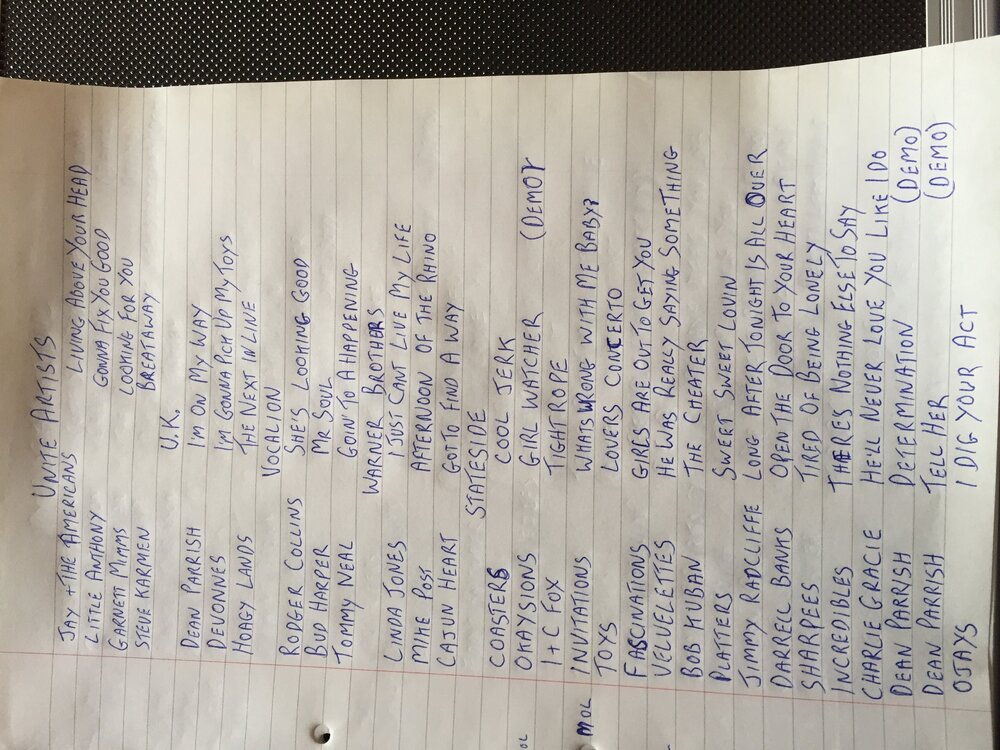 UNITE ARTISTS
JAY + THE AMERICANS LIVING ABOVE YOUR HEAD
LITTLE ANTHONY GONNA FIX YOU GOOD
GARNETT MIMMS LOOKING FOR YOU
STEVE KARMEN BREATAWAY
U.K.
DEAN PARRISH I'M ON MY WAY
DEVONNES I'M GONNA PICK UP MY TOYS
HOAGY LANDS THE NEXT IN LINE
VOCALION
RODGER COLLINS SHE'S LOOKING GOOD
BUD HARPER MR SOUL
TOMMY NEAL GOIN TO A HAPPENING
WARNER BROTHARS
LINDA JONES I JUST CANT LIVE MY LIFE
MIKE POST AFTERNOON OF THE RHINO
CAJUN HEART GOT TO FIND A WAY
STATESIDE
COASTERS COOL JERK
OKAYSIONS GIRL WATCHER (DEMO)
I + C FOX TIGHTROPE
INVITATIONS WHATS WRONG WITH ME BABY?
TOYS LOVERS CONCERTO
FASCINATIONS GIRLS ARE OUT TO GET YOU
VELVELETTES HE WAS REALLY SAYING SOMETHING
BOB KUBAN THE CHEATER
PLATTERS SWEET SWEET LOVIN
JIMMY RADCLIFFE LONG AFTER TONIGHT IS ALL OVER
DARREL BANKS OPEN THE DOOR TO YOUR HEART
SHARPEES TIRED OF BEING LONELY
INCREDIBLES THERES NOTHING ELSE TO SAY
CHARLIE GRACIE HE'LL NEVER LOVE YOU LIKE I DO
DEAN PARRISH DETERMINATION (DEMO)
DEAN PARRISH TELL HER (DEMO)
OJAYS I DIG YOUR ACT
OL
MOL